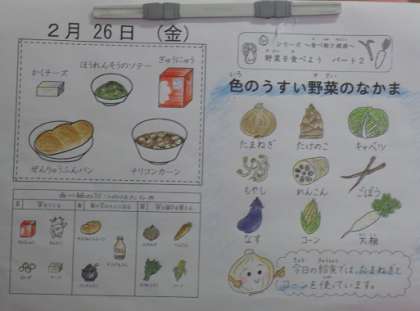 2月 26日 (金)
かくチーズ
ほうれんそうのソテー
ぎゅうにゅう
ぜんりゅうふんパン
チリコンカーン
シリーズ ～食べ物と健康～
野菜を食べよう パート2
色のうすい野菜のなかま
たまねぎ
たけのこ
キャベツ
もやし
れんこん
ごぼう
なす
コーン
大根
今日の給食では、たまねぎと
コーンを使っています。